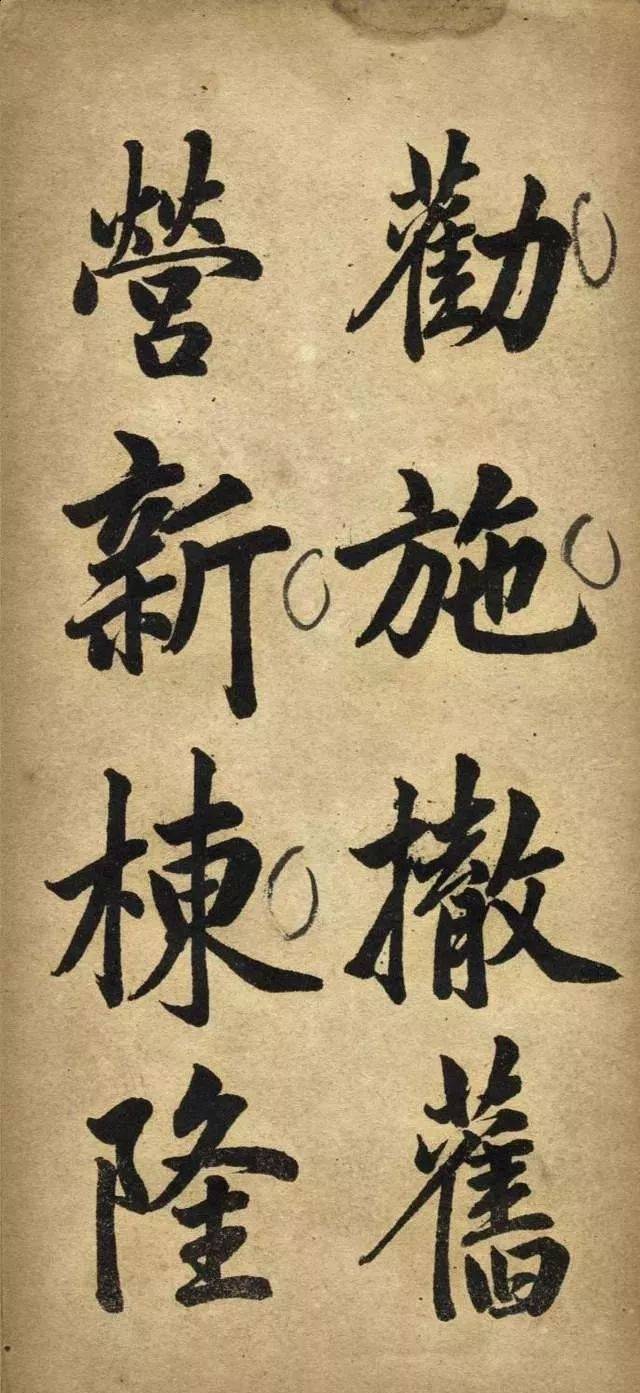 勸施撤舊
營新棟隆